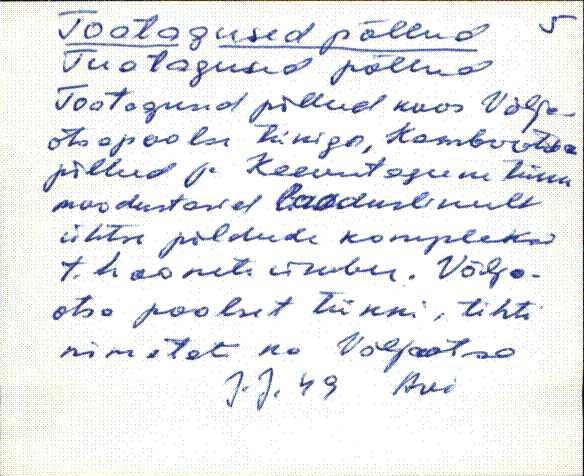 Tootagused põllud 5
Tuatagused põllud
Tootagused põllud koos Välja-
otsapoolse tükiga, Kambriotsa
põllud ja Keeveritaguse tükk
moodustasid looduslikult
ühtse põldude kompleksi
t. hoonete ümber. Välja-
otsa poolset tükki, tihti
nimetati ka Väljaotsa
J.J. 49 Avi